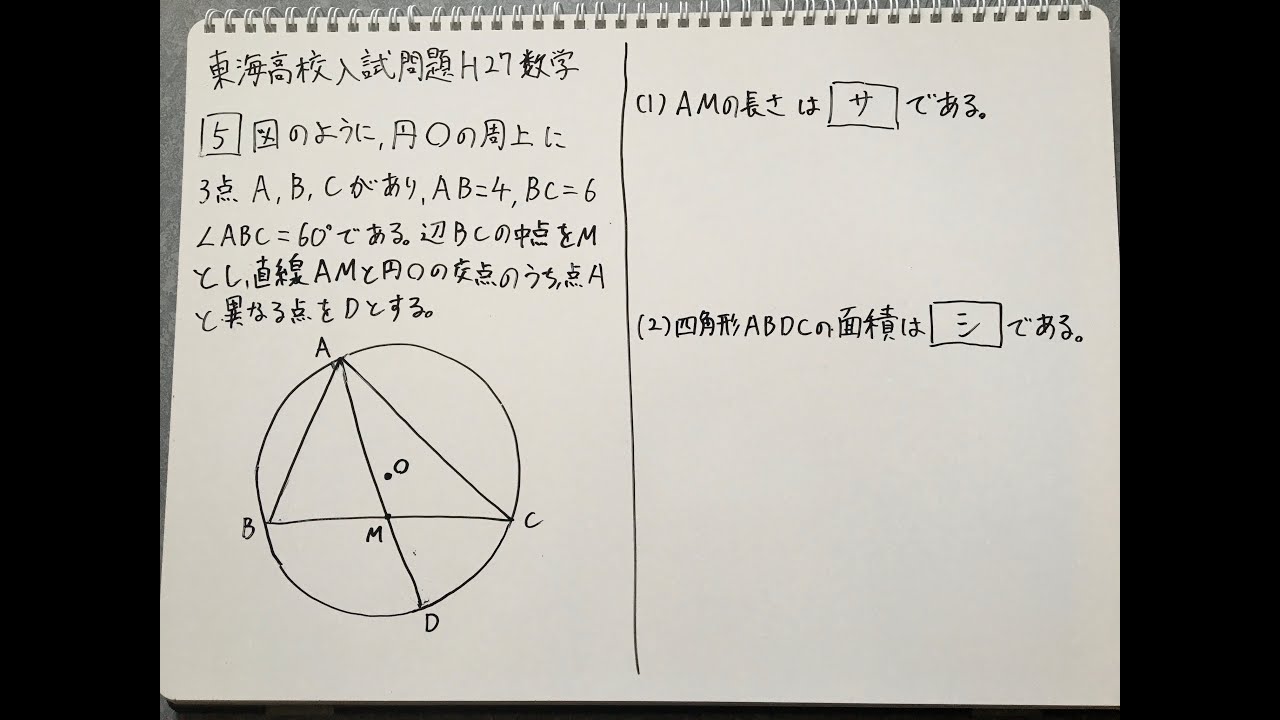 東海高校入試問題H27数学
5 図のように,円Oの周上に
3点 A, B, Cがあり, AB=4, BC=6
∠ABC=60°である。辺BCの中点をM
とし,直線AMと円Oの交点のうち,点A
と異なる点をDとする。
A
O
B
M
C
D
(1) AMの長さは サ である。
(2) 四角形ABDCの面積は シ である。